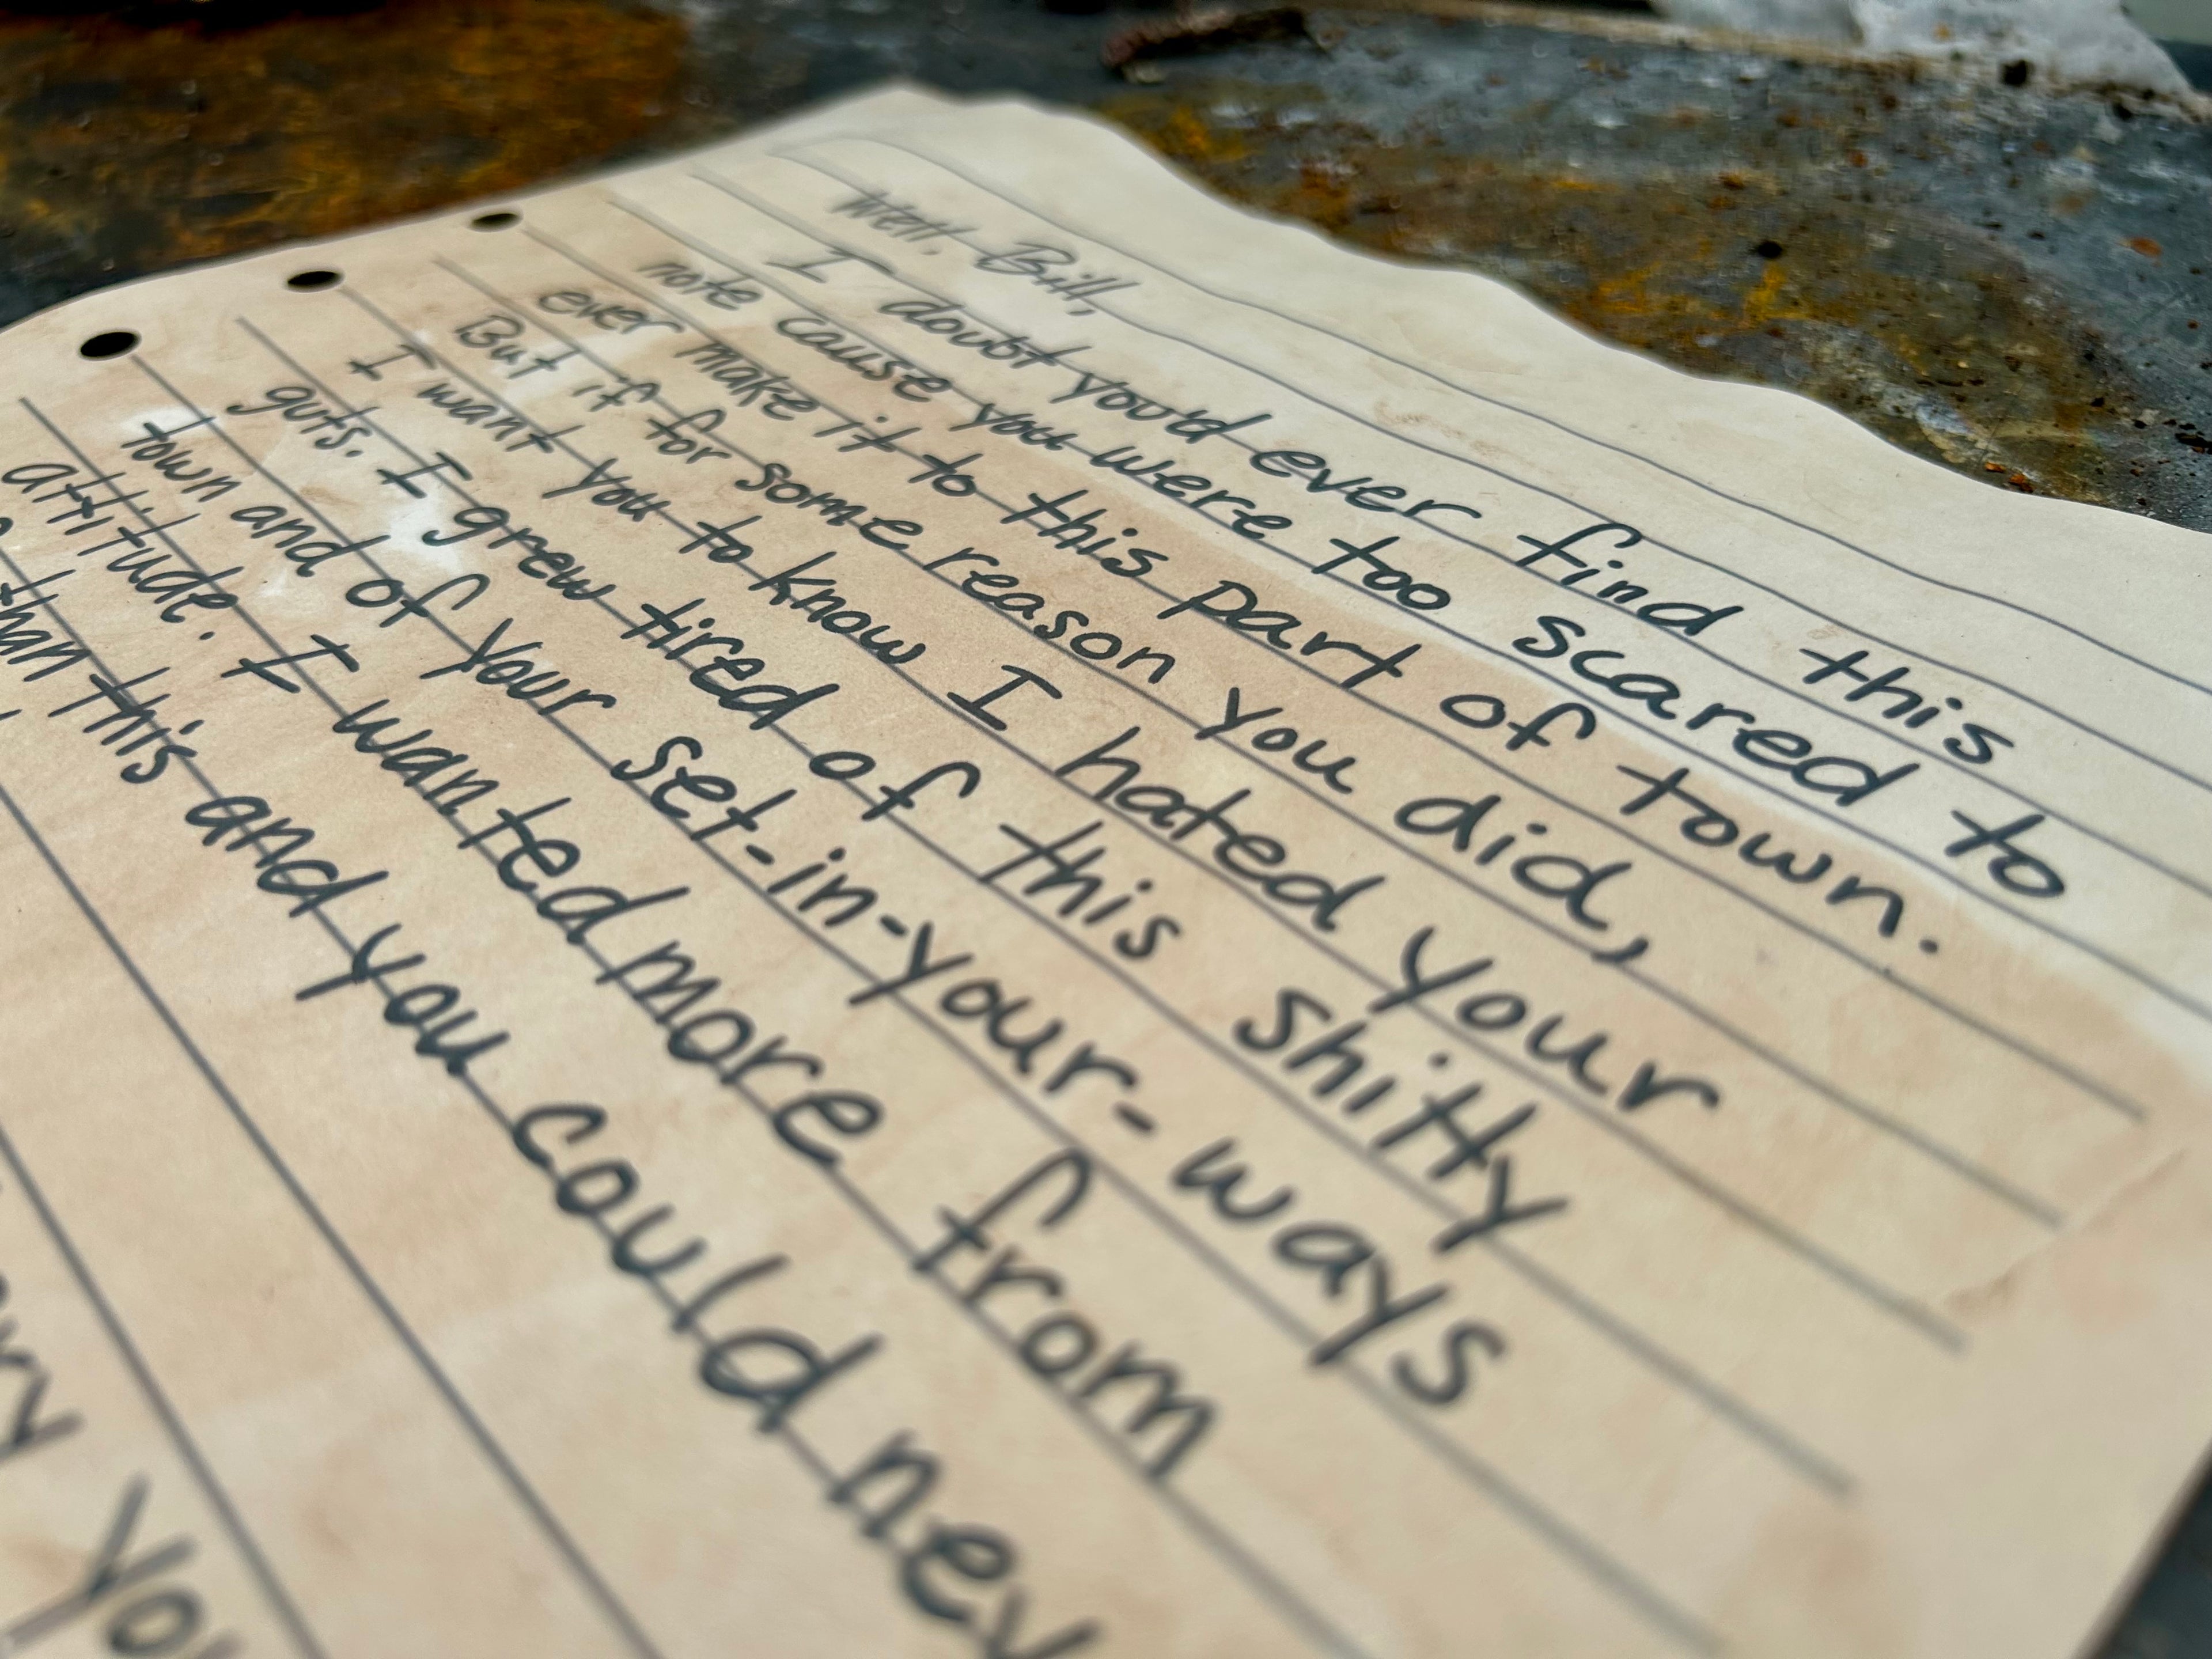 Well, Bill,
I doubt you'd ever find this
note cause you were too scared to
ever make it to this part of town.
But if for some reason you did,
I want you to know I hated your
guts. I grew tired of this shitty
town and of your set-in-your-ways
attitude. I wanted more from
than this and you could nev
you